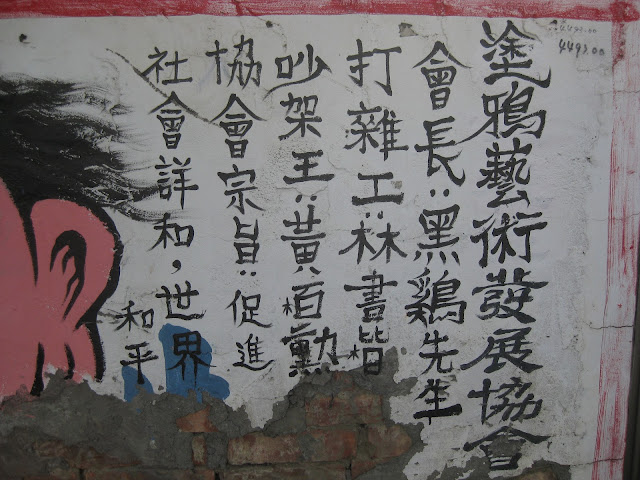 塗鴉藝術發展協會
會長：黑鷄先生
打雜工：林書楷
吵架王：黃栢勳
協會宗旨：促進
社會詳和，世界
和平